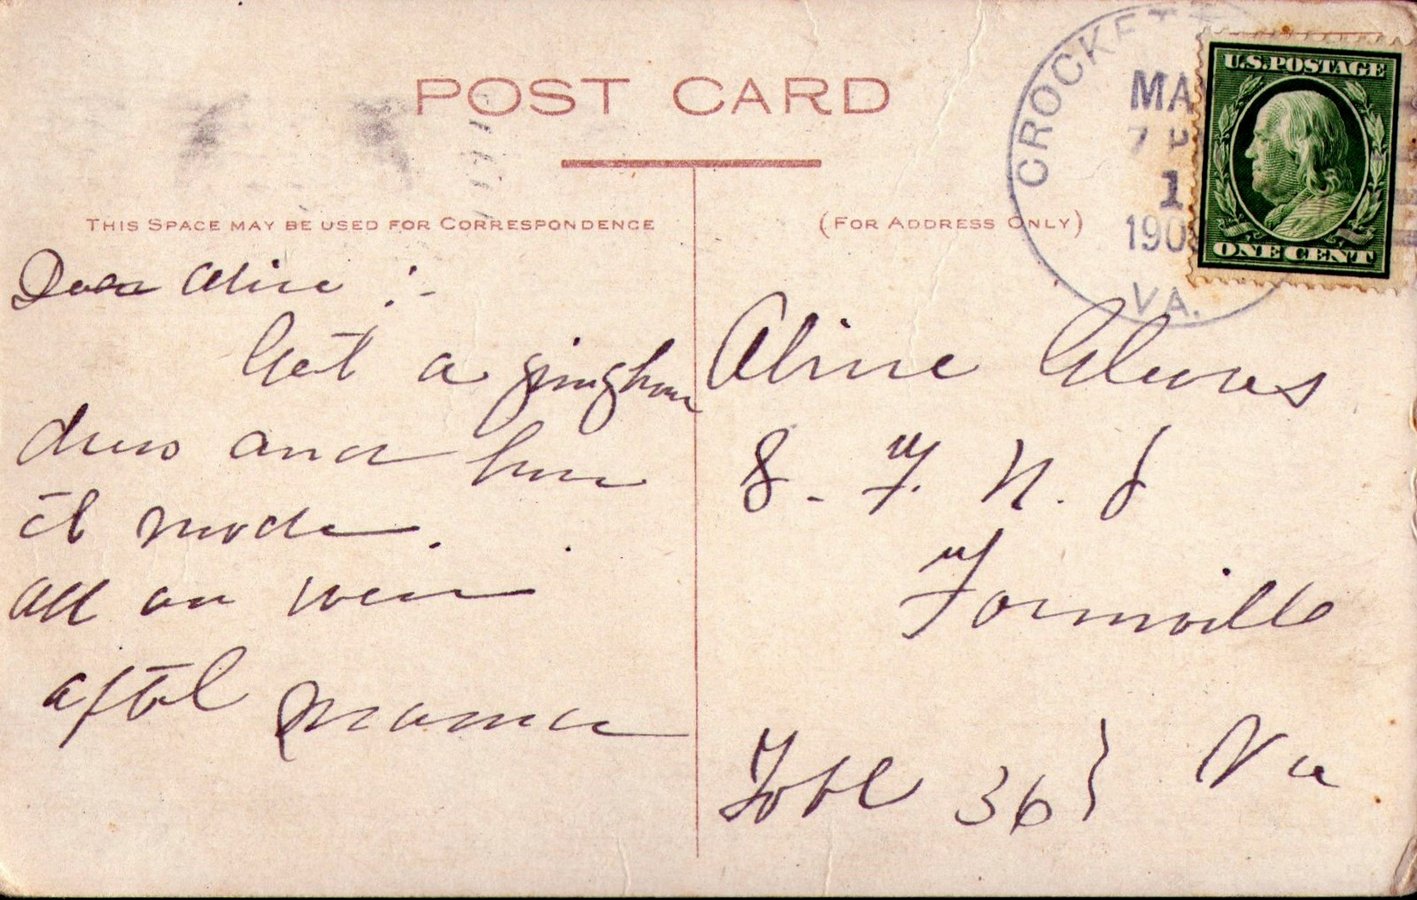 POST CARD
THIS SPACE MAY BE USED FOR CORRESPONDENCE
(FOR ADDRESS ONLY)
CROCKETT
MA
7 P
1
190
VA.
U.S. POSTAGE
ONE CENT
Dear Aline :-
Get a gingham
dress and have
it made.
all are well
aftel Mama
Aline
S. F. N. S
Farmville
Table 36} Va